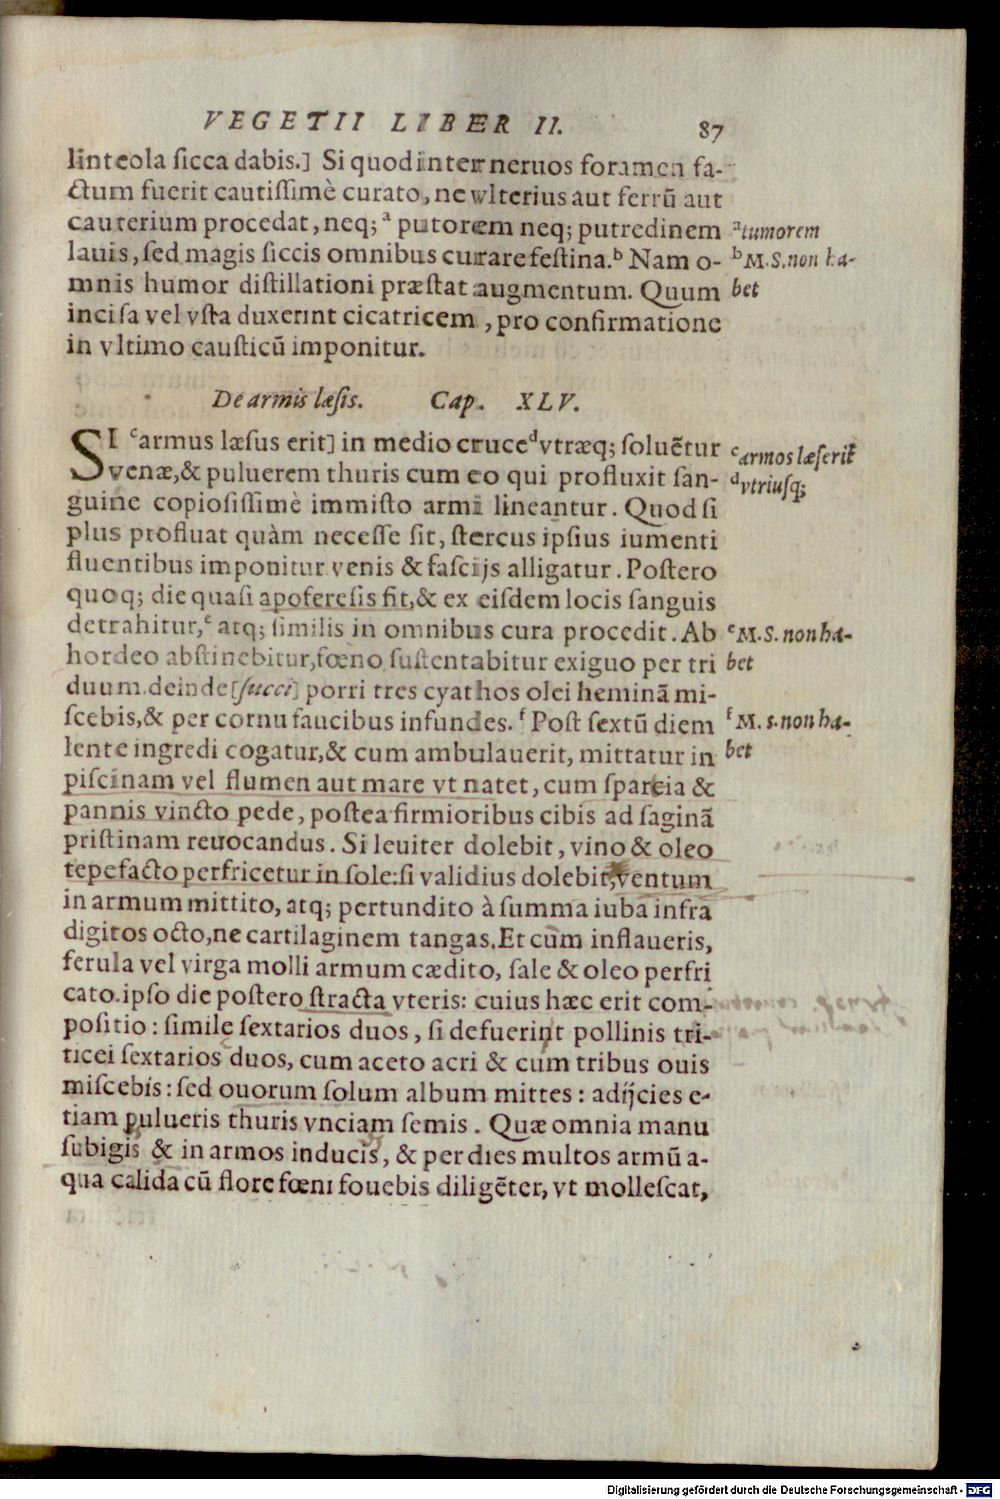 VEGETII LIBER II. 87
linteola ſicca dabis.] Si quod inter neruos foramen fa-
ctum fuerit cautiſſimè curato, ne vlterius aut ferrū aut
cauterium procedat, neq; ᵃ putorem neq; putredinem
ᵃtumorem
lauis, ſed magis ſiccis omnibus curare feſtina.ᵇ Nam o-
ᵇM.S. non ha-
mnis humor diſtillationi præſtat augmentum. Quum
bet
inciſa vel vſta duxerint cicatricem, pro confirmatione
in vltimo cauſticū imponitur.
De armis læſis. Cap. XLV.
SI ᶜarmus læſus erit] in medio cruce ᵈvtræq; ſoluētur
ᶜarmos læſerit
venæ, & puluerem thuris cum eo qui profluxit ſan-
ᵈvtriuſq;
guine copioſiſſimè immiſto armi lineantur. Quod ſi
plus profluat quàm neceſſe ſit, ſtercus ipſius iumenti
fluentibus imponitur venis & faſcijs alligatur. Poſtero
quoq; die quaſi apoſereſis fit, & ex eiſdem locis ſanguis
detrahitur,ᵉ atq; ſimilis in omnibus cura procedit. Ab
ᵉM.S. non ha-
hordeo abſtinebitur, fœno ſuſtentabitur exiguo per tri
bet
duum. deinde [ſucci] porri tres cyathos olei heminā mi-
ſcebis, & per cornu faucibus infundes. ᶠ Poſt ſextū diem
ᶠM. s. non ha-
lente ingredi cogatur, & cum ambulauerit, mittatur in
bet
piſcinam vel flumen aut mare vt natet, cum ſparcia &
pannis vincto pede, poſtea firmioribus cibis ad ſaginā
priſtinam reuocandus. Si leuiter dolebit, vino & oleo
tepefacto perfricetur in ſole: ſi validius dolebit, ventum
in armum mittito, atq; pertundito à ſumma iuba infra
digitos octo, ne cartilaginem tangas. Et cum inflaueris,
ferula vel virga molli armum cædito, ſale & oleo perfri
cato. ipſo die poſtero ſtracta vteris: cuius hæc erit com-
poſitio: ſimilę ſextarios duos, ſi defuerint pollinis tri-
ticei ſextarios duos, cum aceto acri & cum tribus ouis
miſcebis: ſed ouorum ſolum album mittes: adijcies e-
tiam pulueris thuris vnciam ſemis. Quæ omnia manu
ſubigis & in armos inducis, & per dies multos armū a-
qua calida cū flore fœni fouebis diligēter, vt molleſcat,
Digitalisierung gefördert durch die Deutsche Forschungsgemeinschaft - DFG